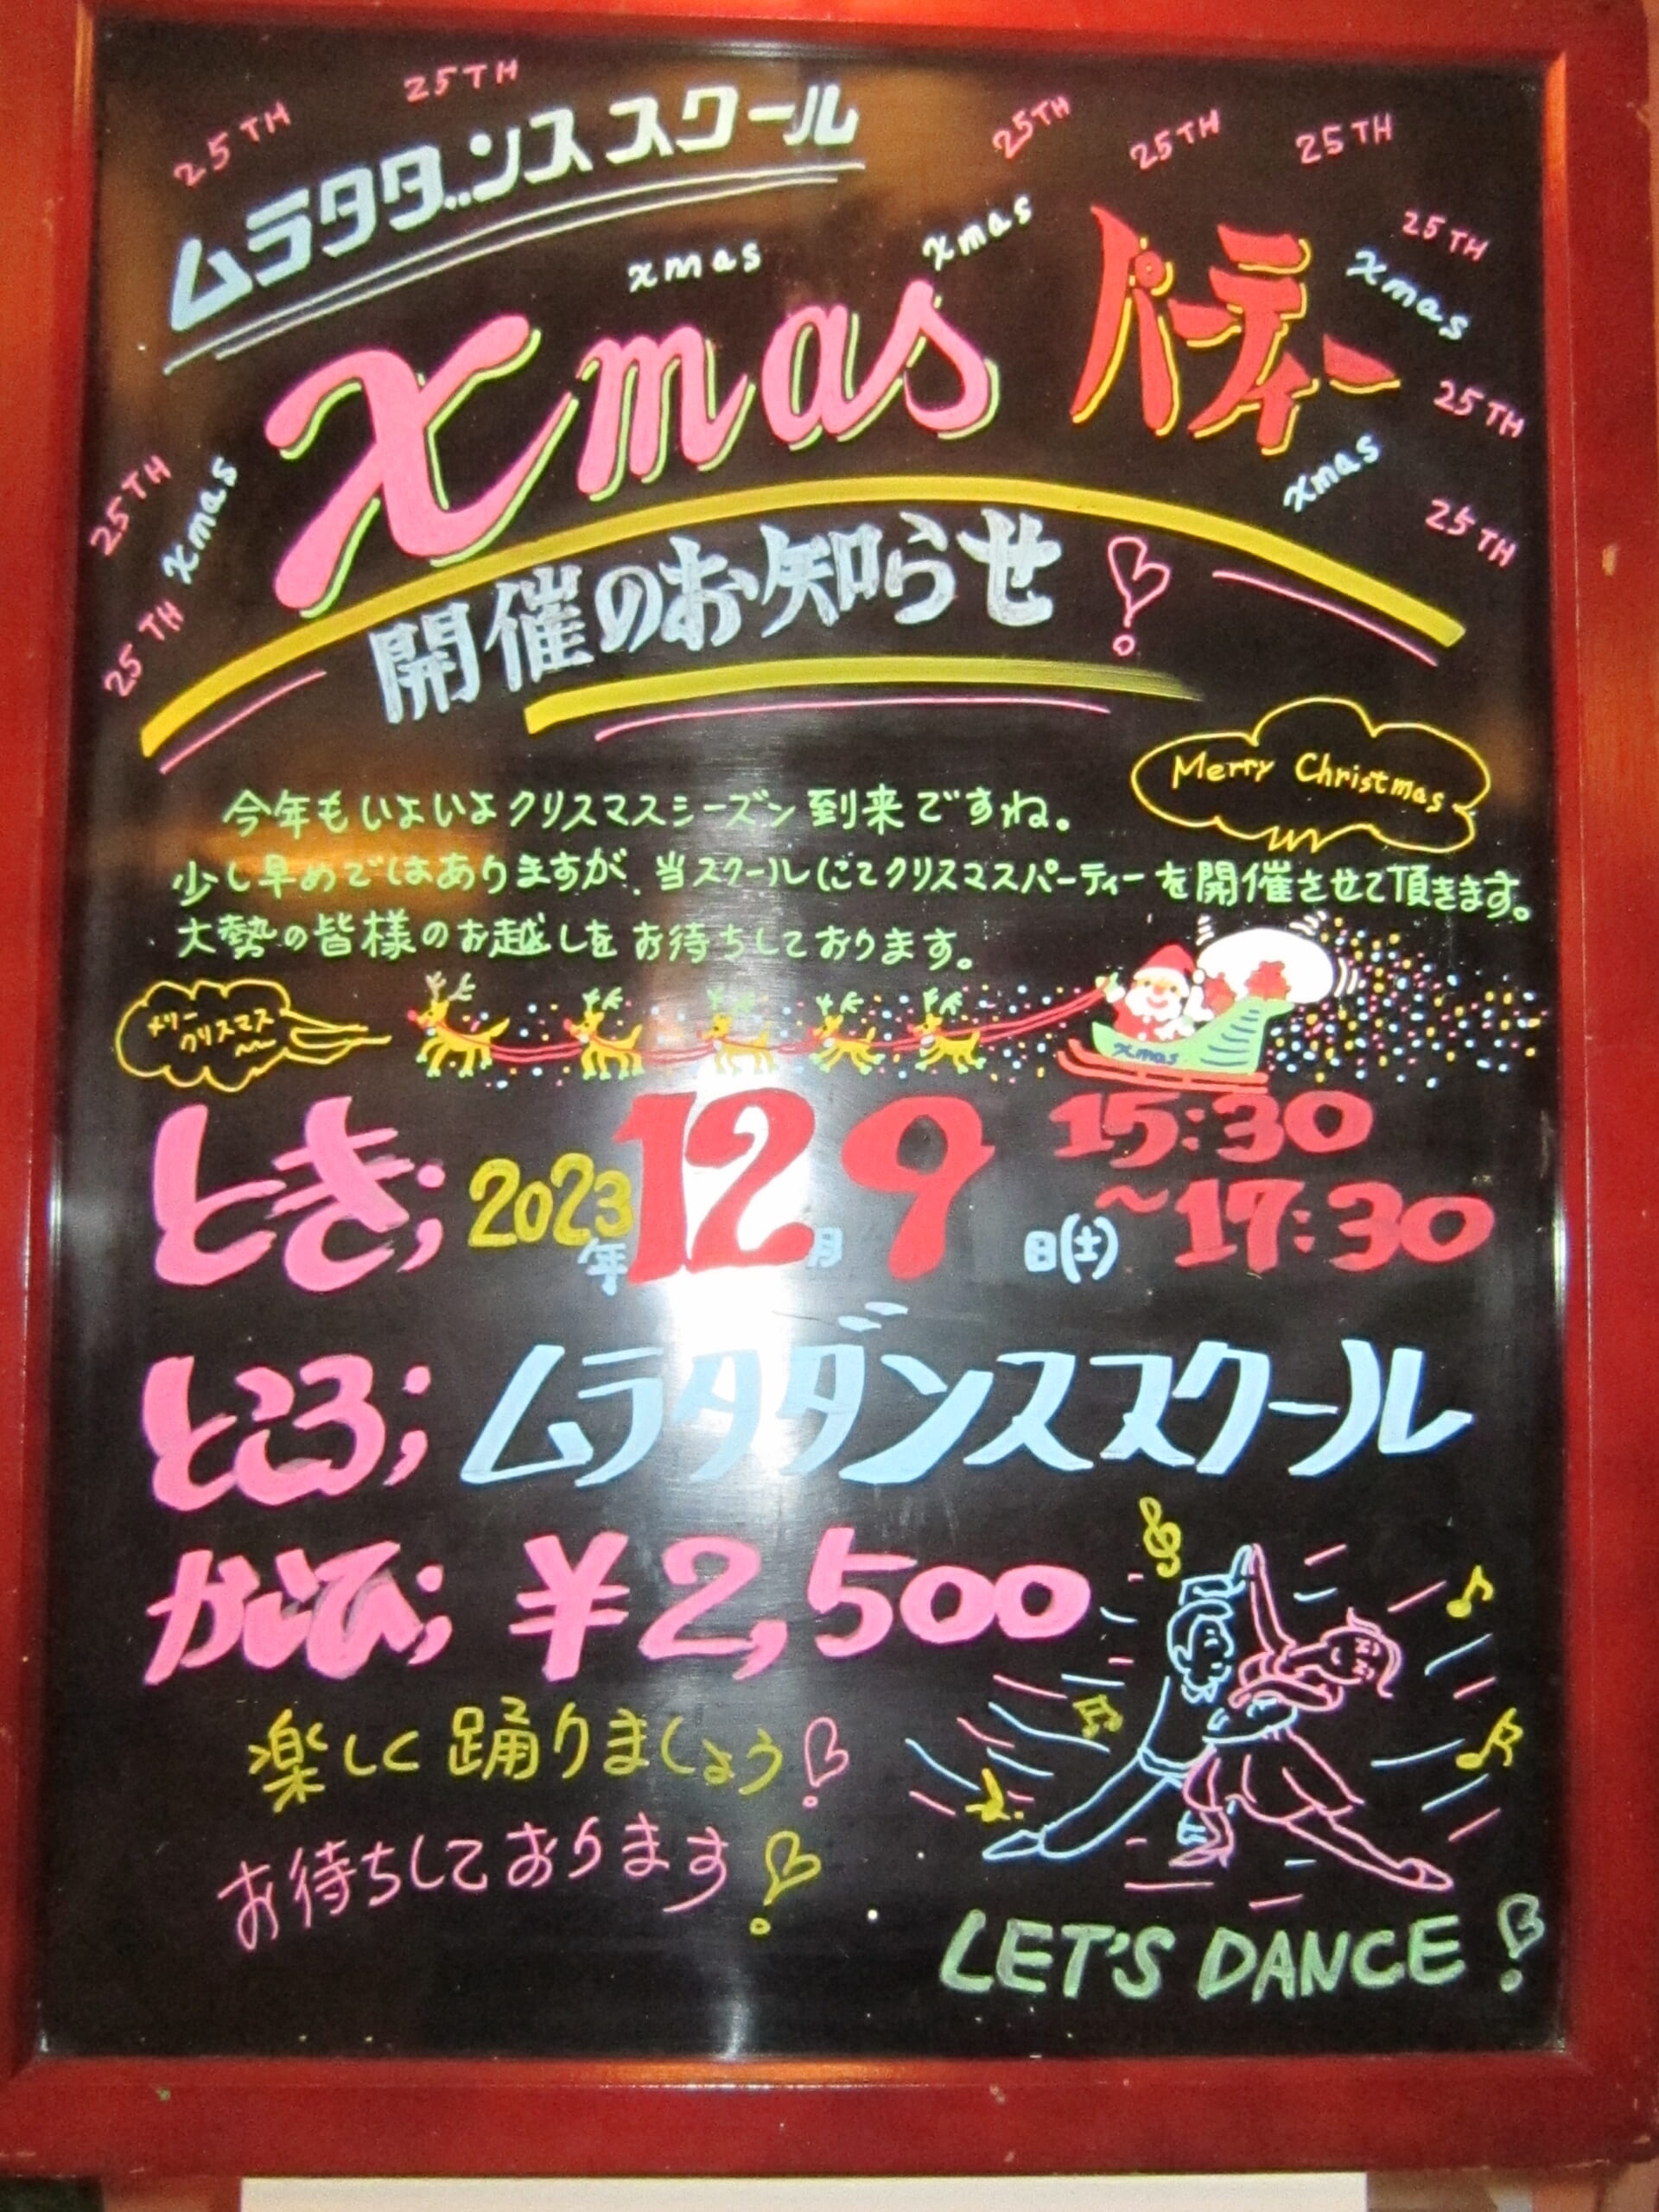 25TH
25TH
25TH
25TH
25TH
ムラタダンススクール
25TH
xmas
xmas
xmas
Xmas パーティー
25TH
25TH
xmas
xmas
25TH
25TH
開催のお知らせ!
Merry Christmas
今年もいよいよクリスマスシーズン到来ですね。
少し早めではありますが、当スクールにてクリスマスパーティーを開催させて頂きます。
大勢の皆様のお越しをお待ちしております。
メリークリスマス
xmas
とき; 2023年12月9日(土) 15:30
~17:30
ところ; ムラタダンススクール
かいひ; ¥2,500
楽しく踊りましょう!
お待ちしております!
LET'S DANCE!